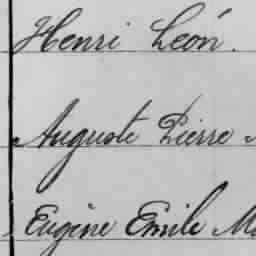 Henri León.
Auguste Pierre
Eugène Emile